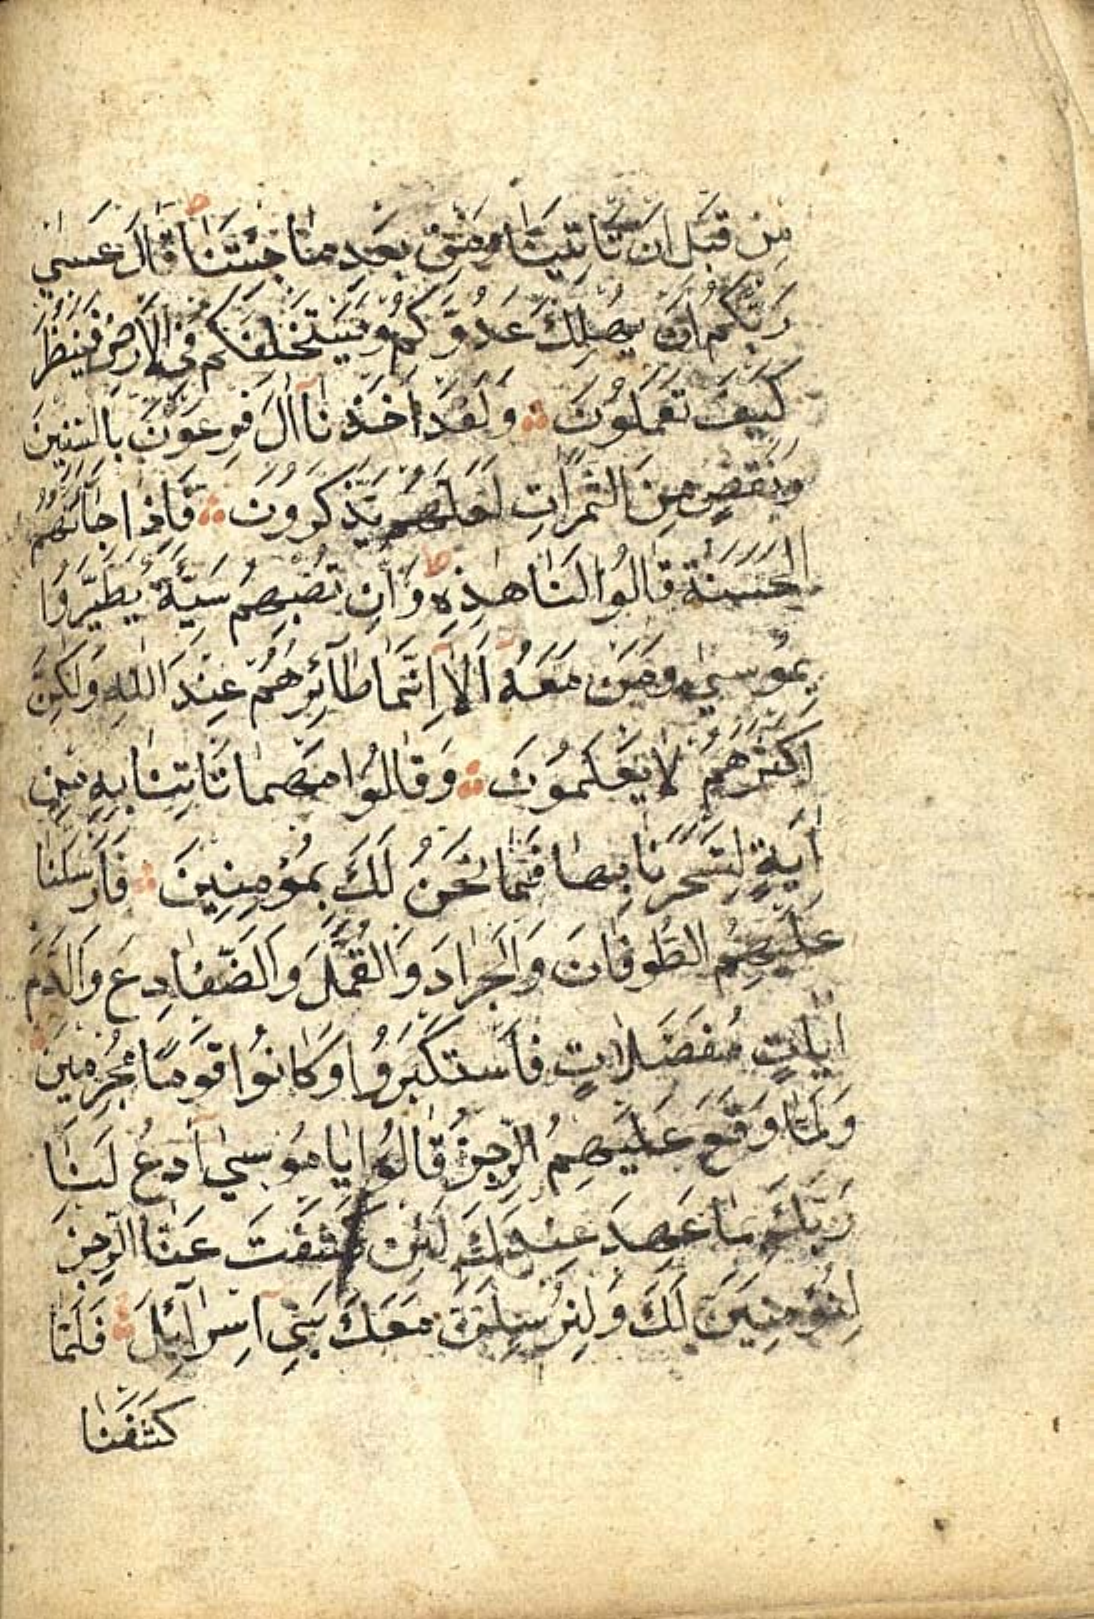 مِنْ قَبْلِ اَنْ تَاْتِيَنَا وَمِنْ بَعْدِ مَا جِئْتَنَا ط قَالَ عَسٰى
رَبُّكُمْ اَنْ يُهْلِكَ عَدُوَّكُمْ وَيَسْتَخْلِفَكُمْ فِى الْاَرْضِ فَيَنْظُرَ
كَيْفَ تَعْمَلُونَ ۞ وَلَقَدْ اَخَذْنَآ اٰلَ فِرْعَوْنَ بِالسِّنِينَ
وَنَقْصٍ مِنَ الثَّمَرَاتِ لَعَلَّهُمْ يَذَّكَّرُونَ ۞ فَاِذَا جَآءَتْهُمُ
الْحَسَنَةُ قَالُوا لَنَا هٰذِهٖ ط وَاِنْ تُصِبْهُمْ سَيِّئَةٌ يَطَّيَّرُوا
بِمُوسٰى وَمَنْ مَعَهُ اَلَآ اِنَّمَا طَآئِرُهُمْ عِنْدَ اللّٰهِ وَلٰكِنَّ
اَكْثَرَهُمْ لَا يَعْلَمُونَ ۞ وَقَالُوا مَهْمَا تَاْتِنَا بِهٖ مِنْ
اٰيَةٍ لِتَسْحَرَنَا بِهَا فَمَا نَحْنُ لَكَ بِمُؤْمِنِينَ ۞ فَاَرْسَلْنَا
عَلَيْهِمُ الطُّوفَانَ وَالْجَرَادَ وَالْقُمَّلَ وَالضَّفَادِعَ وَالدَّمَ
اٰيَاتٍ مُفَصَّلَاتٍ فَاسْتَكْبَرُوا وَكَانُوا قَوْمًا مُجْرِمِينَ ۞
وَلَمَّا وَقَعَ عَلَيْهِمُ الرِّجْزُ قَالُوا يَا مُوسٰى ادْعُ لَنَا
رَبَّكَ بِمَا عَهِدَ عِنْدَكَ لَئِنْ كَشَفْتَ عَنَّا الرِّجْزَ
لَنُؤْمِنَنَّ لَكَ وَلَنُرْسِلَنَّ مَعَكَ بَنِىٓ اِسْرَآئِلَ ۞ فَلَمَّا
كَشَفْنَا